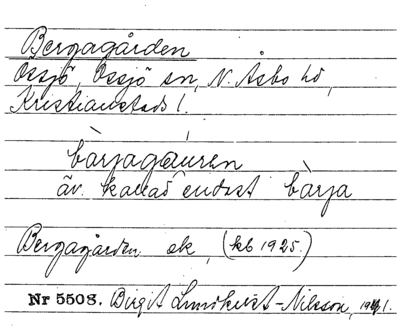 Bergagården
Össjö, Össjö sn, N. Åsbo hd,
Kristianstads l.
bàrjagauren
äv. kallad endast bàrja
Bergagården ek, (kb 1925.)
Nr 5508. Birgit Lundkvist-Nilsson, 1941.